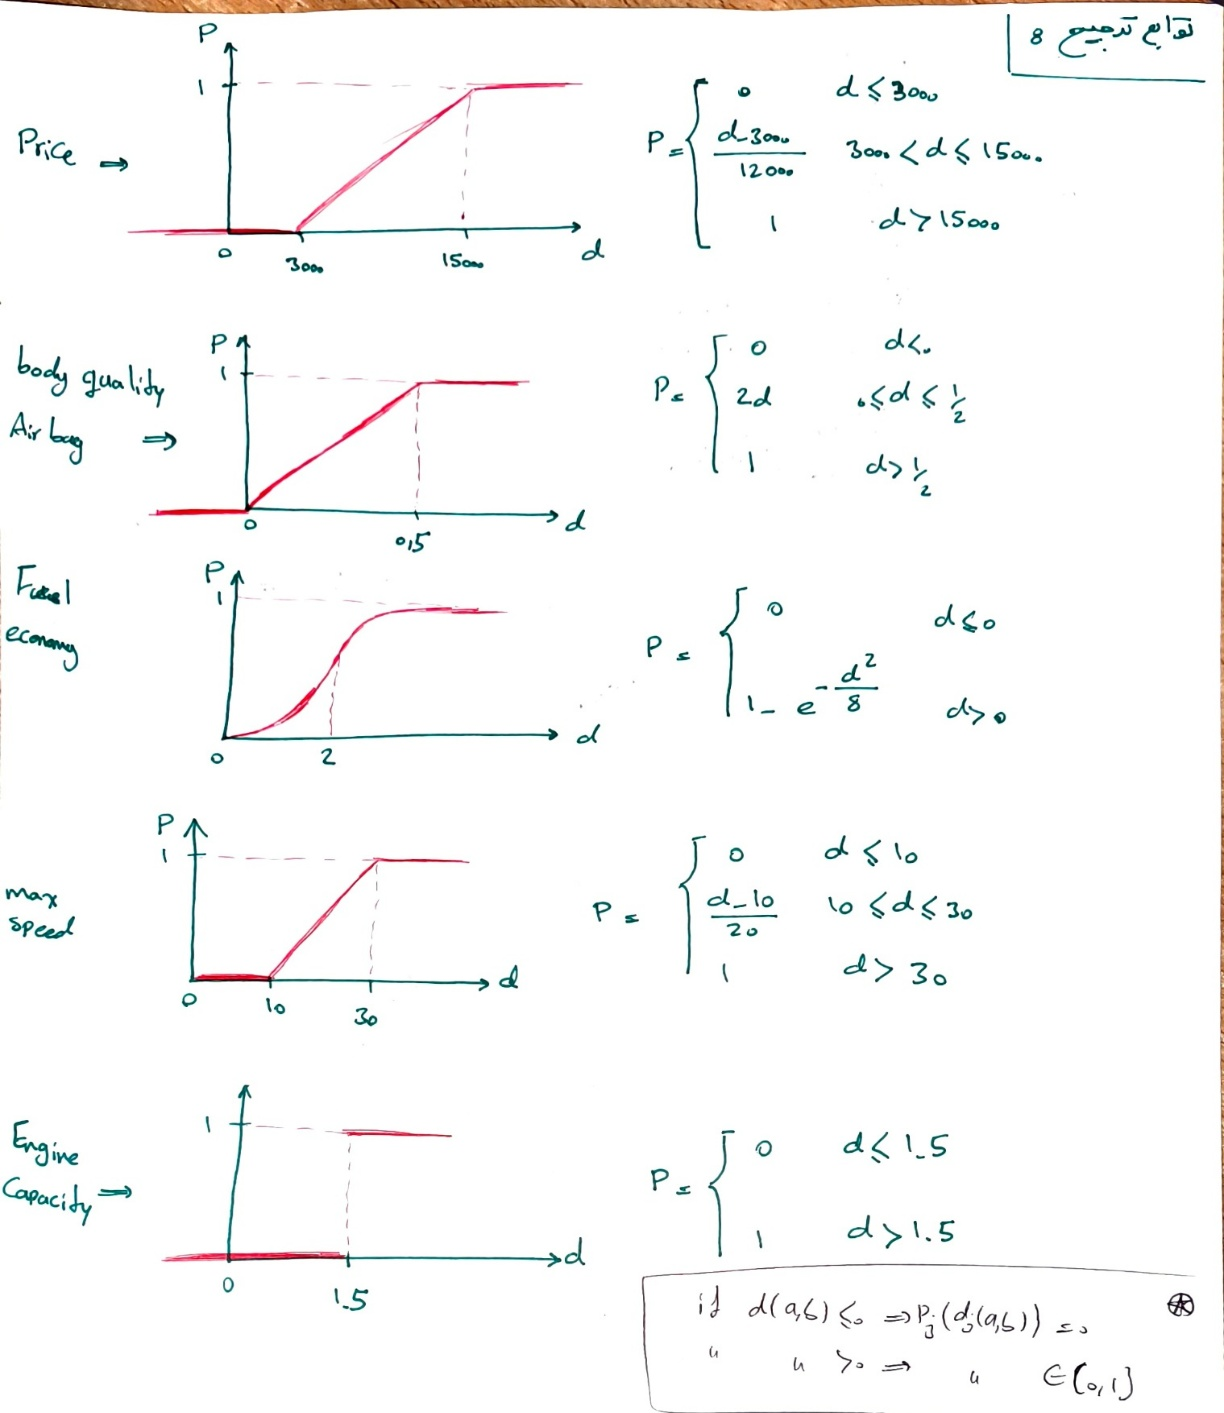 توابع ترجیح 8
Price ⇒
P
1
0
3000
15000
d
P = { 0 d ≤ 3000
(d-3000)/12000 3000 < d ≤ 15000
1 d > 15000
body quality
Air bag ⇒
P
1
0
0,5
d
P = { 0 d < 0
2d 0 ≤ d ≤ 1/2
1 d > 1/2
Fuel
economy
P
1
0
2
d
P = { 0 d ≤ 0
1 - e^(-d²/8) d > 0
max
speed
P
1
0
10
30
d
P = { 0 d ≤ 10
(d-10)/20 10 ≤ d ≤ 30
1 d > 30
Engine
Capacity ⇒
1
0
1.5
d
P = { 0 d ≤ 1.5
1 d > 1.5
if d(a,b) ≤ 0 ⇒ Pj(dj(a,b)) = 0
" " > 0 ⇒ " ∈ [0,1]